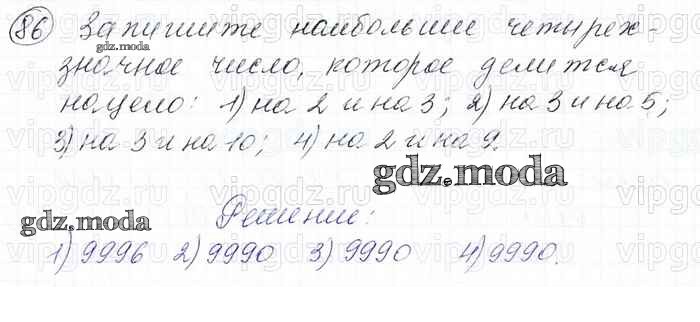 86 Запишите наибольшие четырех-
gdz.moda
значное число, которое делится
нацело: 1) на 2 и на 3; 2) на 3 и на 5;
3) на 3 и на 10; 4) на 2 и на 9.
gdz.moda
gdz.moda Решение:
1) 9996 2) 9990 3) 9990 4) 9990.